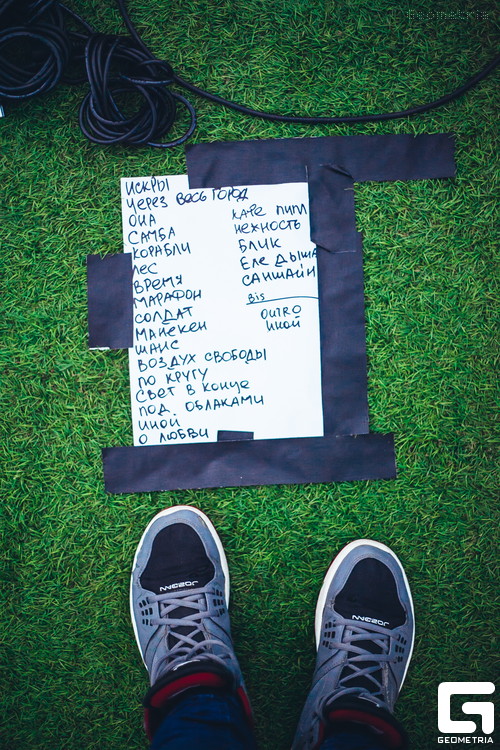 Geometria
ИСКРЫ
ЧЕРЕЗ ВЕСЬ ГОРОД
ОНА
САМБА
КОРАБЛИ
ЛЕС
ВРЕМЯ
МАРАФОН
СОЛДАТ
МАНЕКЕН
ШАНС
ВОЗДУХ СВОБОДЫ
ПО КРУГУ
СВЕТ В КОНЦЕ
ПОД ОБЛАКАМИ
ИНОЙ
О ЛЮБВИ
КАРЕ ПИПЛ
НЕЖНОСТЬ
БЛИК
ЕЛЕ ДЫША
САНШАЙН
Bis
OUTRO
ИНОЙ
JORDAN
JORDAN
GEOMETRIA